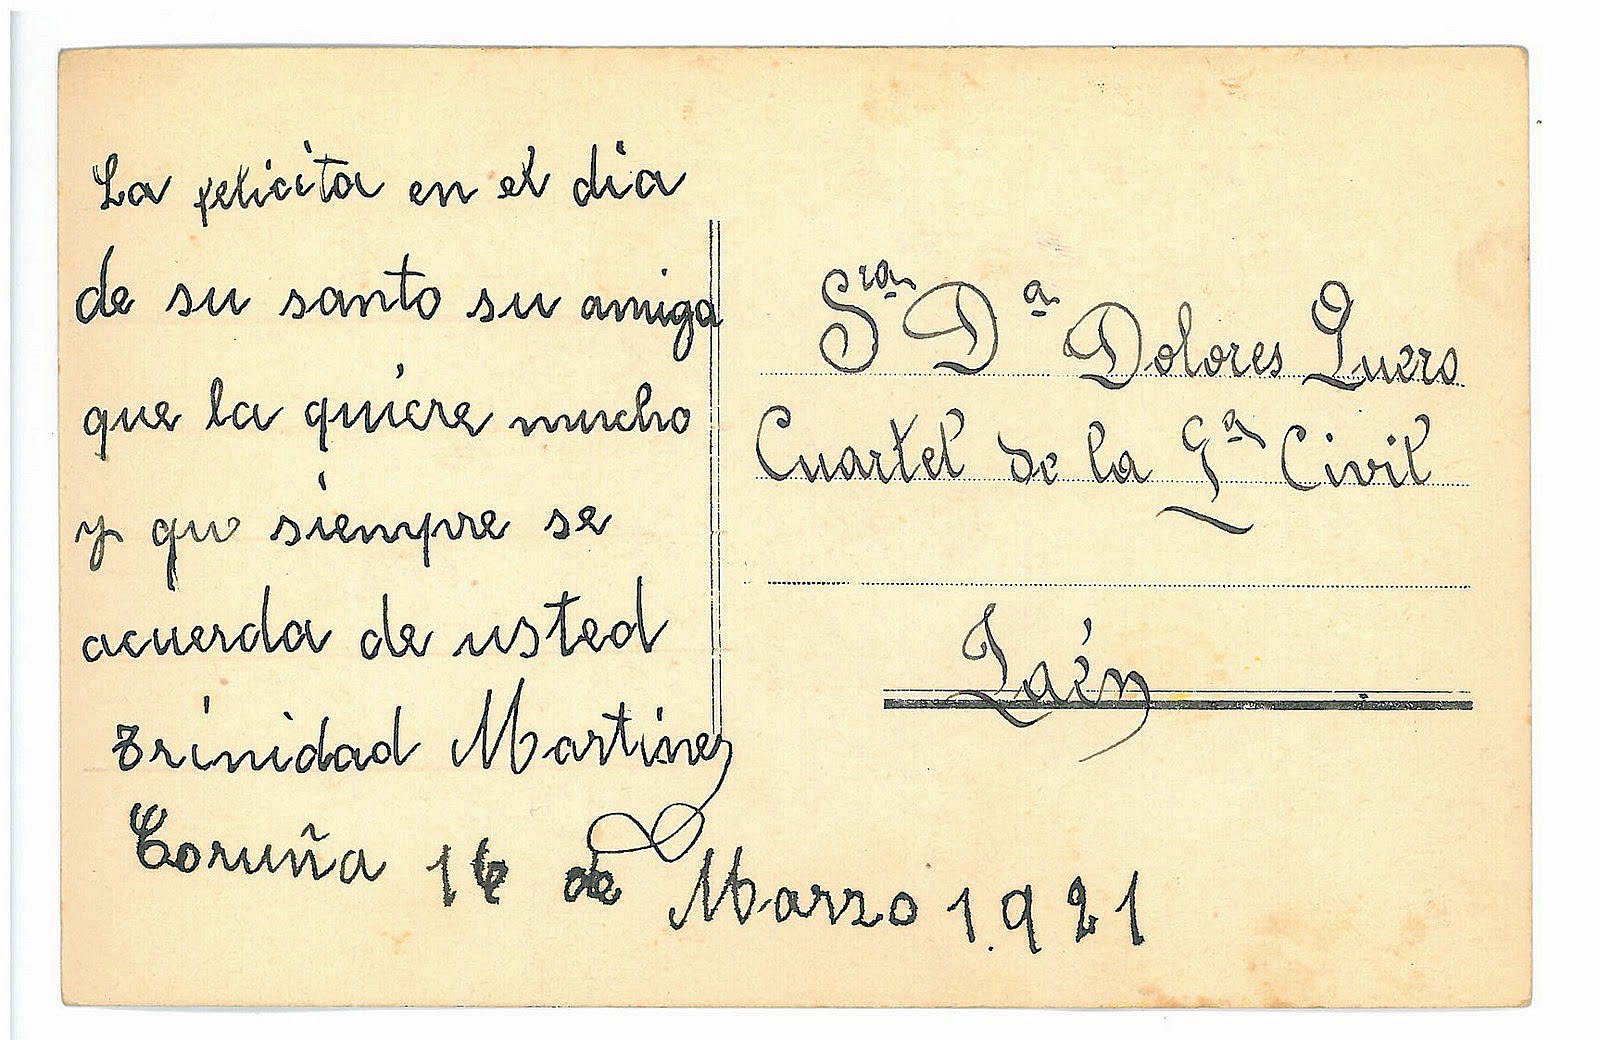 La felicita en el dia
de su santo su amiga
que la quiere mucho
y qu siempre se
acuerda de usted
Trinidad Martinez
Coruña de Marzo 1.921
Sra Da Dolores Quero
Cuartel de la Ga Civil
Jaén